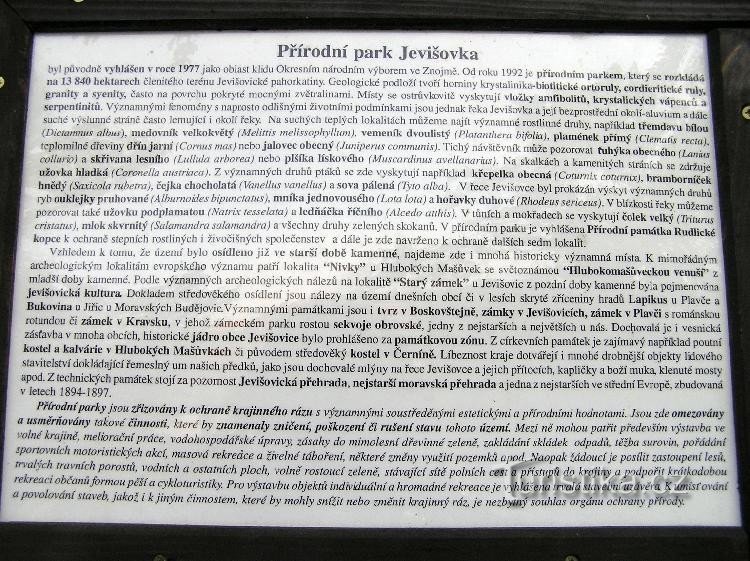 Přírodní park Jevišovka
byl původně vyhlášen v roce 1977 jako oblast klidu Okresním národním výborem ve Znojmě. Od roku 1992 je přírodním parkem, který se rozkládá
na 13 840 hektarech členitého terénu Jevišovické pahorkatiny. Geologické podloží tvoří horniny krystalinika-biotitické ortoruly, cordieritické ruly,
granity a syenity, často na povrchu pokryté mocnými zvětralinami. Místy se ostrůvkovitě vyskytují vložky amfibolitů, krystalických vápenců a
serpentinitů. Významnými fenomény s naprosto odlišnými životními podmínkami jsou jednak řeka Jevišovka a její bezprostřední okolí-aluvium a dále
suché výslunné stráně často lemující i okolí řeky. Na suchých teplých lokalitách můžeme najít významné rostlinné druhy, například třemdavu bílou
(Dictamnus albus), medovník velkokvětý (Melittis melissophyllum), vemeník dvoulistý (Platanthera bifolia), plamének přímý (Clematis recta),
teplomilné dřeviny dřín jarní (Cornus mas) nebo jalovec obecný (Juniperus communis). Tichý návštěvník může pozorovat ťuhýka obecného (Lanius
collurio) a skřivana lesního (Lullula arborea) nebo plšíka lískového (Muscardinus avellanarius). Na skalkách a kamenitých stráních se zdržuje
užovka hladká (Coronella austriaca). Z významných druhů ptáků se zde vyskytují například křepelka obecná (Coturnix coturnix), bramborníček
hnědý (Saxicola rubetra), čejka chocholatá (Vanellus vanellus) a sova pálená (Tyto alba). V řece Jevišovce byl prokázán výskyt významných druhů
ryb ouklejky pruhované (Alburnoides bipunctatus), mníka jednovousého (Lota lota) a hořavky duhové (Rhodeus sericeus). V blízkosti řeky můžeme
pozorovat také užovku podplamatou (Natrix tesselata) a ledňáčka říčního (Alcedo atthis). V tůních a mokřadech se vyskytují čolek velký (Triturus
cristatus), mlok skvrnitý (Salamandra salamandra) a všechny druhy zelených skokanů. V přírodním parku je vyhlášena Přírodní památka Rudlické
kopce k ochraně stepních rostlinných i živočišných společenstev a dále je zde navrženo k ochraně dalších sedm lokalit.
Vzhledem k tomu, že území bylo osídleno již ve starší době kamenné, najdeme zde i mnohá historicky významná místa. K mimořádným
archeologickým lokalitám evropského významu patří lokalita "Nivky" u Hlubokých Mašůvek se světoznámou "Hlubokomašůveckou venuší" z
mladší doby kamenné. Podle významných archeologických nálezů na lokalitě "Starý zámek" u Jevišovic z pozdní doby kamenné byla pojmenována
jevišovická kultura. Dokladem středověkého osídlení jsou nálezy na území dnešních obcí či v lesích skryté zříceniny hradů Lapikus u Plavče a
Bukovina u Jiřic u Moravských Budějovic. Významnými památkami jsou i tvrz v Boskovštejně, zámky v Jevišovicích, zámek v Plavči s románskou
rotundou či zámek v Kravsku, v jehož zámeckém parku rostou sekvoje obrovské, jedny z nejstarších a největších u nás. Dochovalá je i vesnická
zástavba v mnoha obcích, historické jádro obce Jevišovice bylo prohlášeno za památkovou zónu. Z církevních památek je zajímavý například poutní
kostel a kalvárie v Hlubokých Mašůvkách či původem středověký kostel v Černíně. Líbeznost kraje dotvářejí i mnohé drobnější objekty lidového
stavitelství dokládající řemeslný um našich předků, jako jsou dochovalé mlýny na řece Jevišovce a jejich přítocích, kapličky a boží muka, klenuté mosty
apod. Z technických památek stojí za pozornost Jevišovická přehrada, nejstarší moravská přehrada a jedna z nejstarších ve střední Evropě, zbudovaná
v letech 1894-1897.
Přírodní parky jsou zřizovány k ochraně krajinného rázu s významnými soustředěnými estetickými a přírodními hodnotami. Jsou zde omezovány
a usměrňovány takové činnosti, které by znamenaly zničení, poškození či rušení stavu tohoto území. Mezi ně mohou patřit především výstavba ve
volné krajině, meliorační práce, vodohospodářské úpravy, zásahy do mimolesní dřevinné zeleně, zakládání skládek odpadů, těžba surovin, pořádání
sportovních motoristických akcí, masová rekreace a živelné táboření, některé změny využití pozemků apod. Naopak žádoucí je posílit zastoupení lesů,
trvalých travních porostů, vodních a ostatních ploch, volně rostoucí zeleně, stávající sítě polních cest k přístupů do krajiny a podpořit krátkodobou
rekreaci občanů formou pěší a cykloturistiky. Pro výstavbu objektů individuální a hromadné rekreace je vyhlášena trvalá stavební uzávěra. K umisťování
a povolování staveb, jakož i k jiným činnostem, které by mohly snížit nebo změnit krajinný ráz, je nezbytný souhlas orgánu ochrany přírody.
turistika.cz